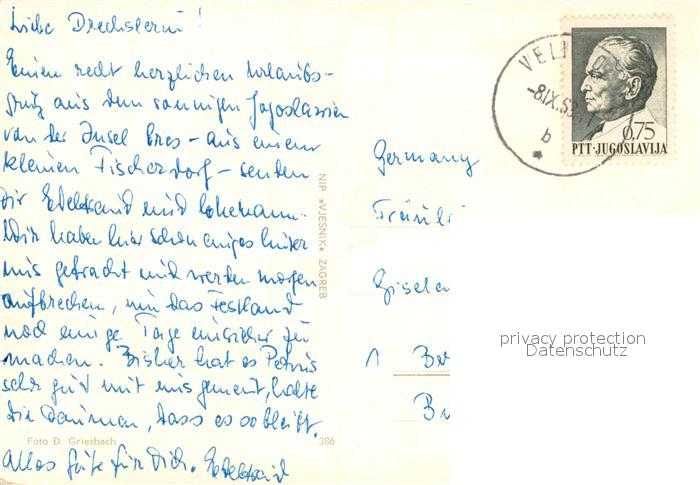 Liebe Drechslerin!
Einen recht herzlichen Urlaubs-
gruß aus dem sonnigen Jugoslawien
von der Insel Cres - aus einem
kleinen Fischerdorf - senden
Dir Edeltraud und
Wir haben hier schon einiges hinter
uns gebracht und werden morgen
aufbrechen, um das Festland
noch einige Tage unsicher zu
machen. Bisher hat es Petrus
sehr gut mit uns gemeint, halte
die Daumen, dass es so bleibt.
Alles Gute für Dich. Edeltraud
Foto Đ. Griesbach
386
NIP »VJESNIK« ZAGREB
VELI
-8.IX.
b
0,75
PTT·JUGOSLAVIJA
Germany
Fräul
Gisela
1 Ber
privacy protection
Datenschutz